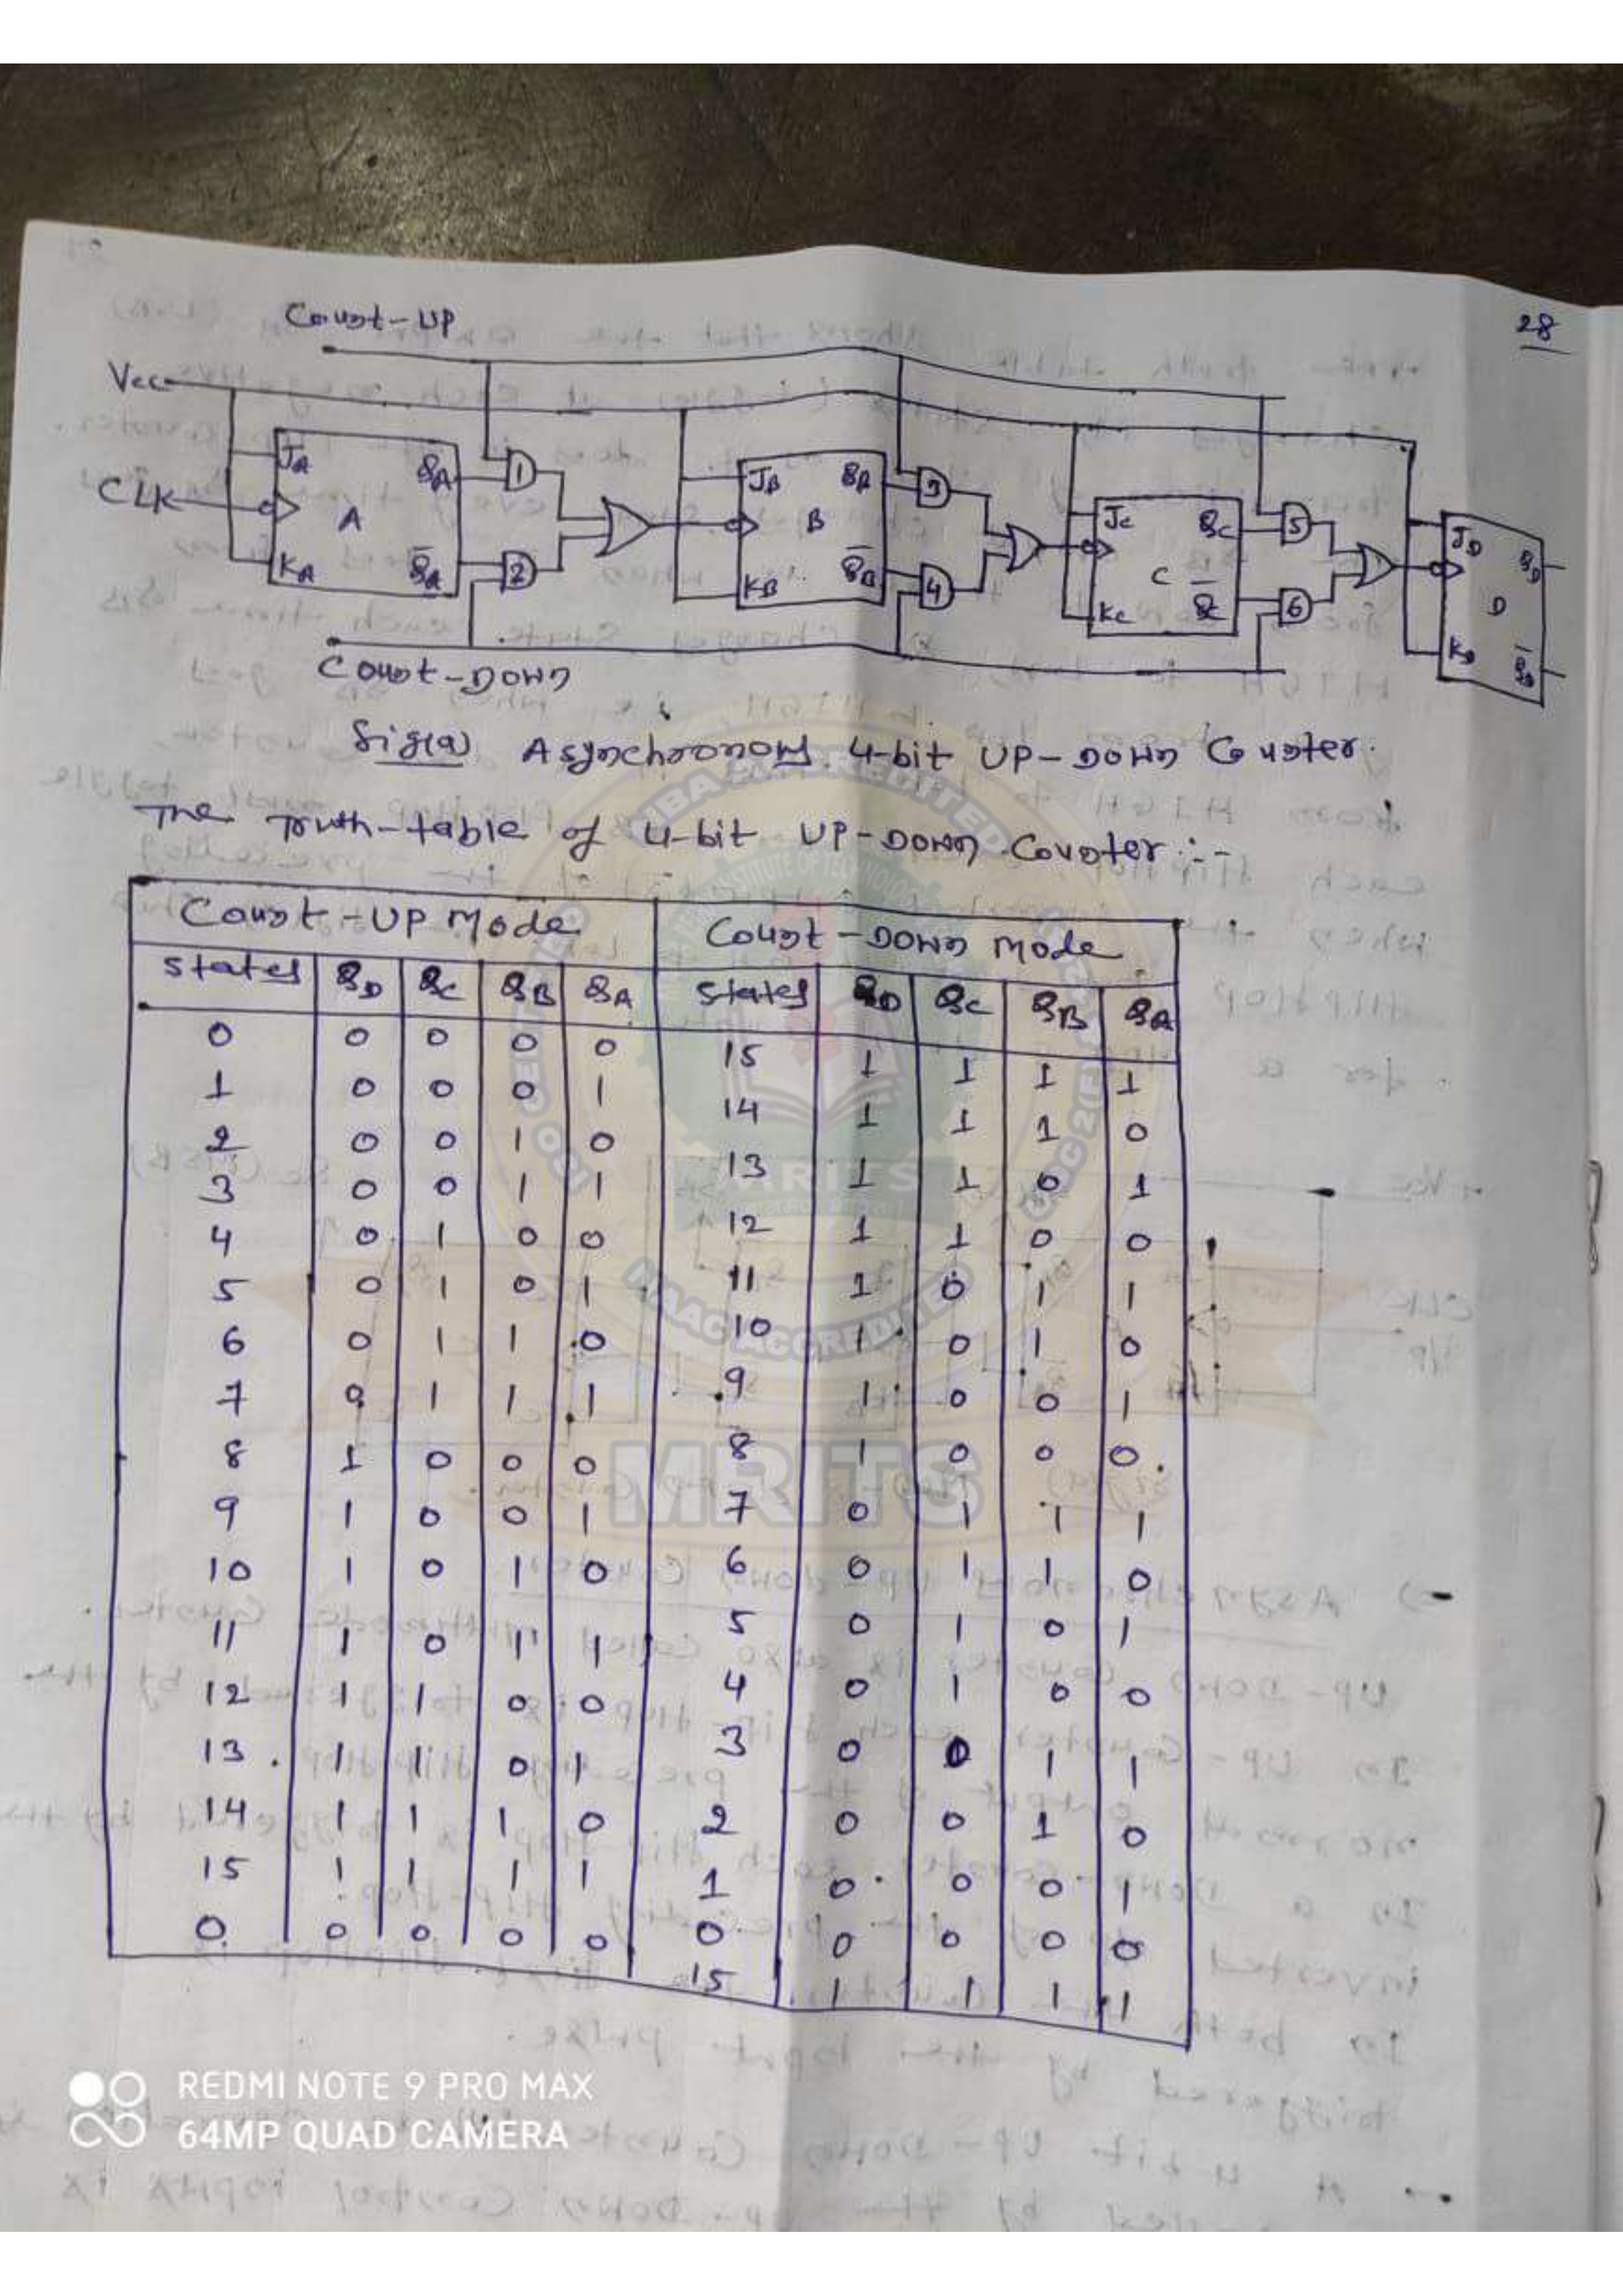 28
Count-UP
Vcc
CLK
JA QA A KA Q̅A
1
2
JB QB B KB Q̅B
3
4
JC QC C KC Q̅C
5
6
JD QD D KD Q̅D
Count-Down
Fig(a) Asynchronous 4-bit UP-Down Counter.
The Truth-table of 4-bit UP-Down Counter :-
Count-UP Mode Count-Down mode
States QD QC QB QA States QD QC QB QA
0 0 0 0 0 15 1 1 1 1
1 0 0 0 1 14 1 1 1 0
2 0 0 1 0 13 1 1 0 1
3 0 0 1 1 12 1 1 0 0
4 0 1 0 0 11 1 0 1 1
5 0 1 0 1 10 1 0 1 0
6 0 1 1 0 9 1 0 0 1
7 0 1 1 1 8 1 0 0 0
8 1 0 0 0 7 0 1 1 1
9 1 0 0 1 6 0 1 1 0
10 1 0 1 0 5 0 1 0 1
11 1 0 1 1 4 0 1 0 0
12 1 1 0 0 3 0 0 1 1
13 1 1 0 1 2 0 0 1 0
14 1 1 1 0 1 0 0 0 1
15 1 1 1 1 0 0 0 0 0
0 0 0 0 0 15 1 1 1 1
NBA ACCREDITED
NAAC ACCREDITED
MRITS
MRITS
REDMI NOTE 9 PRO MAX
64MP QUAD CAMERA